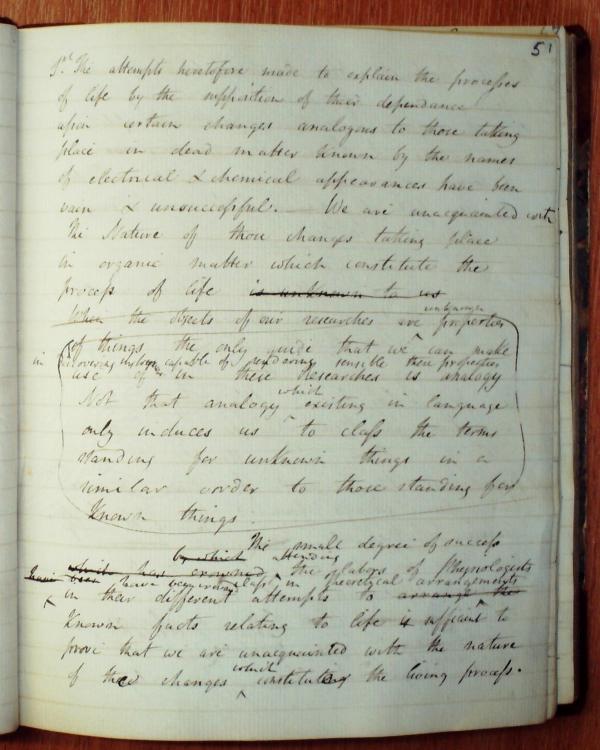 51
1st. The attempts heretofore made to explain the processes
of life by the supposition of their dependance
upon certain changes analogous to those taking
place in dead matter known by the names
of electrical & chemical appearances have been
vain & unsuccessful. — We are unacquainted with
the Nature of those changes taking place
in organic matter which constitute the
process of life is unknown to us
unknown
When the objects of our researches are properties
of things the only guide that we can make
in discovering capable of rendering sensible these properties
use of in these researches is analogy
which
Not that analogy existing in language
only induces us to class the terms
standing for unknown things in a
similar order to those standing for
Known things.
The small degree of success
by which attending
which has crowned the labors of Physiologists
have been have been class in theoretical arrangements
in their different attempts to arrange the
Known facts relating to life is sufficient to
prove that we are unacquainted with the nature
which
of those changes constituting the living process.